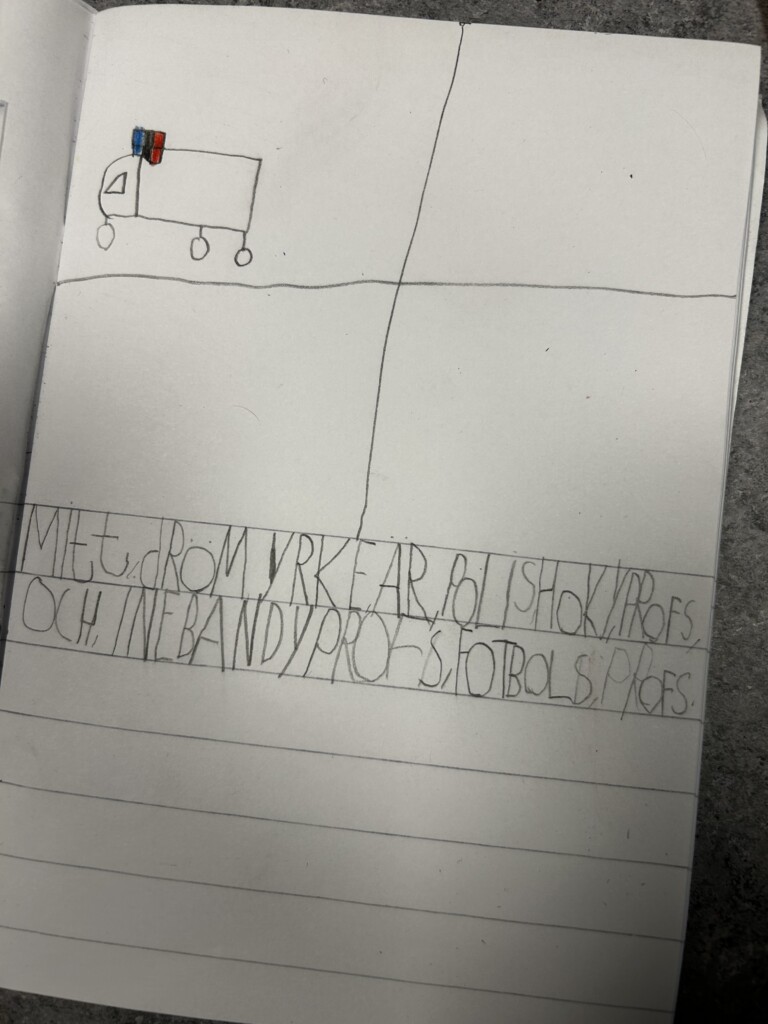 MItt,dRÖM,YRKE,ÄR,POLISHOKY,PROFS,
OCH,INEBANDYPROFS,FOTBOLS,PROFS.